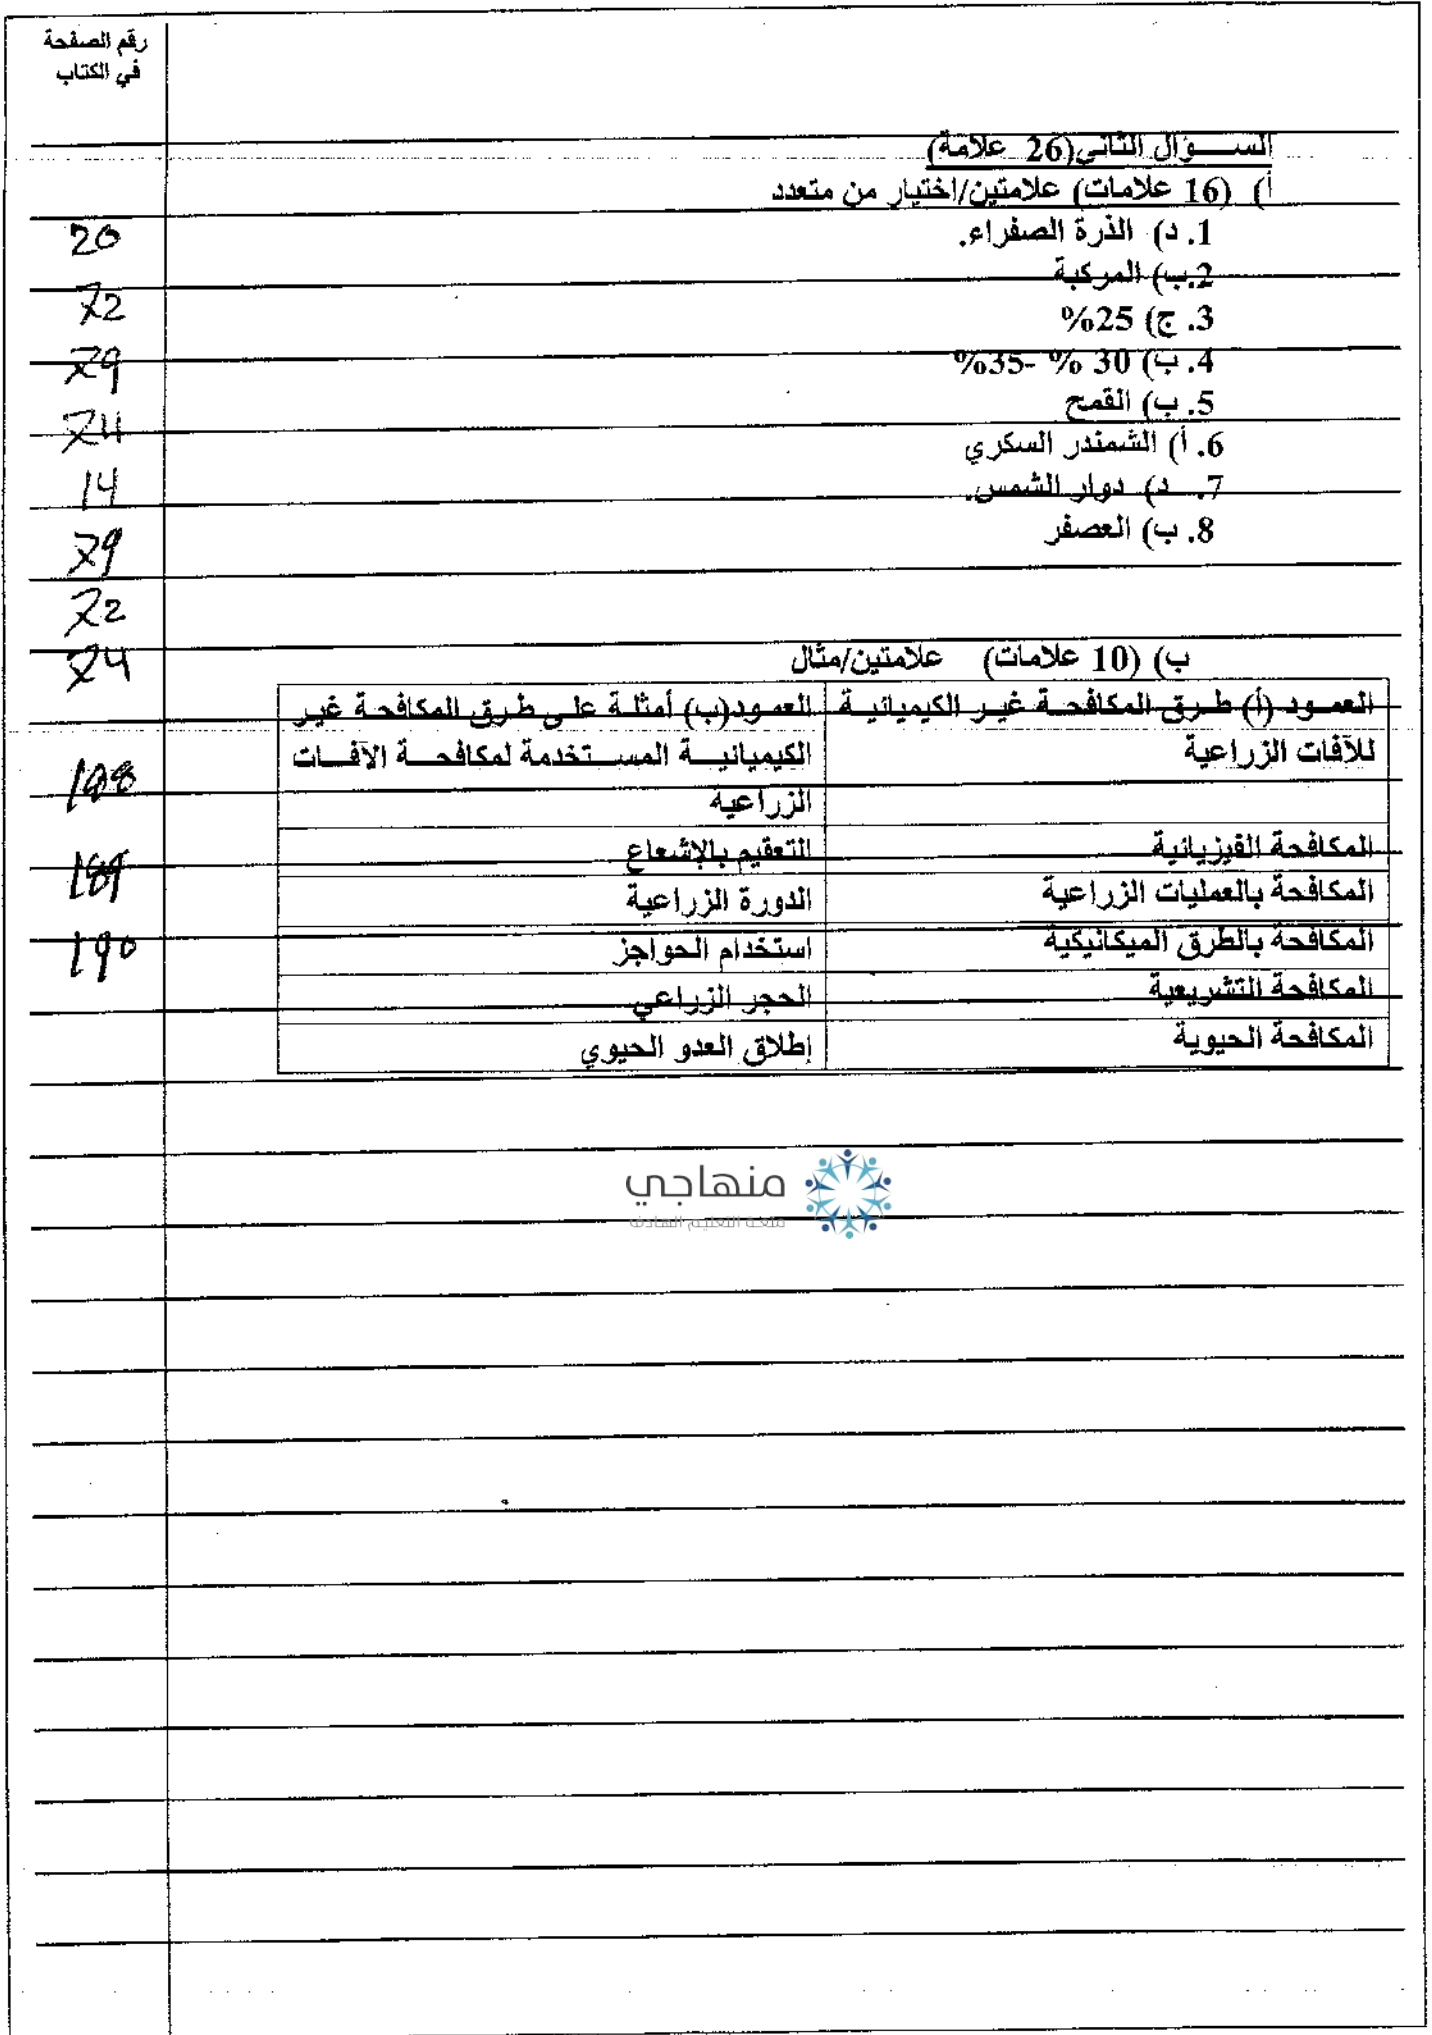 رقم الصفحة
في الكتاب
الســـــؤال الثاني(26 علامة)
أ) (16 علامات) علامتين/اختيار من متعدد
1. د) الذرة الصفراء.
20
2.ب) المركبة
72
3. ج) 25%
4. ب) 30 % -35%
79
5. ب) القمح
74
6. أ) الشمندر السكري
7. د) دوار الشمس.
14
8. ب) العصفر
79
72
ب) (10 علامات) علامتين/مثال
74
العمــود (أ) طــرق المكافحــة غيــر الكيميائيــة
للآفات الزراعية
العمـود(ب) أمثلـة علـى طـرق المكافحـة غيـر
الكيميائيـــة المســـتخدمة لمكافحـــة الآفـــات
الزراعية
188
المكافحة الفيزيائية
التعقيم بالإشعاع
المكافحة بالعمليات الزراعية
الدورة الزراعية
189
المكافحة بالطرق الميكانيكية
استخدام الحواجز
190
المكافحة التشريعية
الحجر الزراعي
المكافحة الحيوية
إطلاق العدو الحيوي
منهاجي
متعة التعليم الهادف